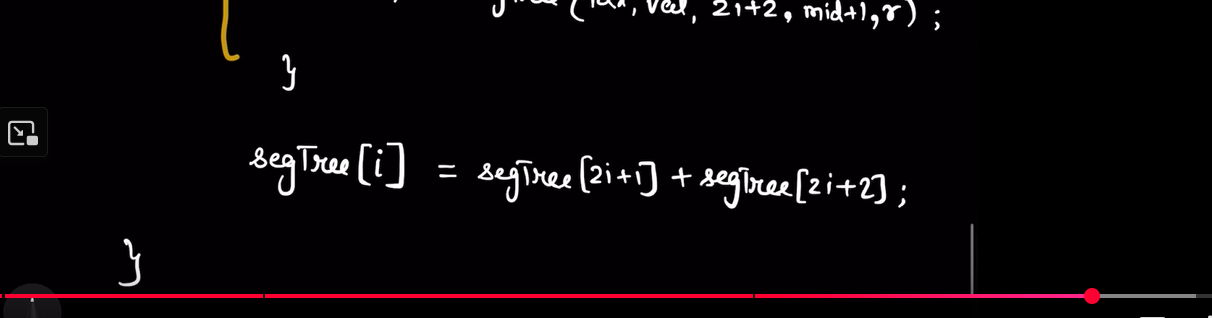 (idx, val, 2i+2, mid+1, r) ;
}
segTree[i] = segTree[2i+1] + segTree[2i+2] ;
}